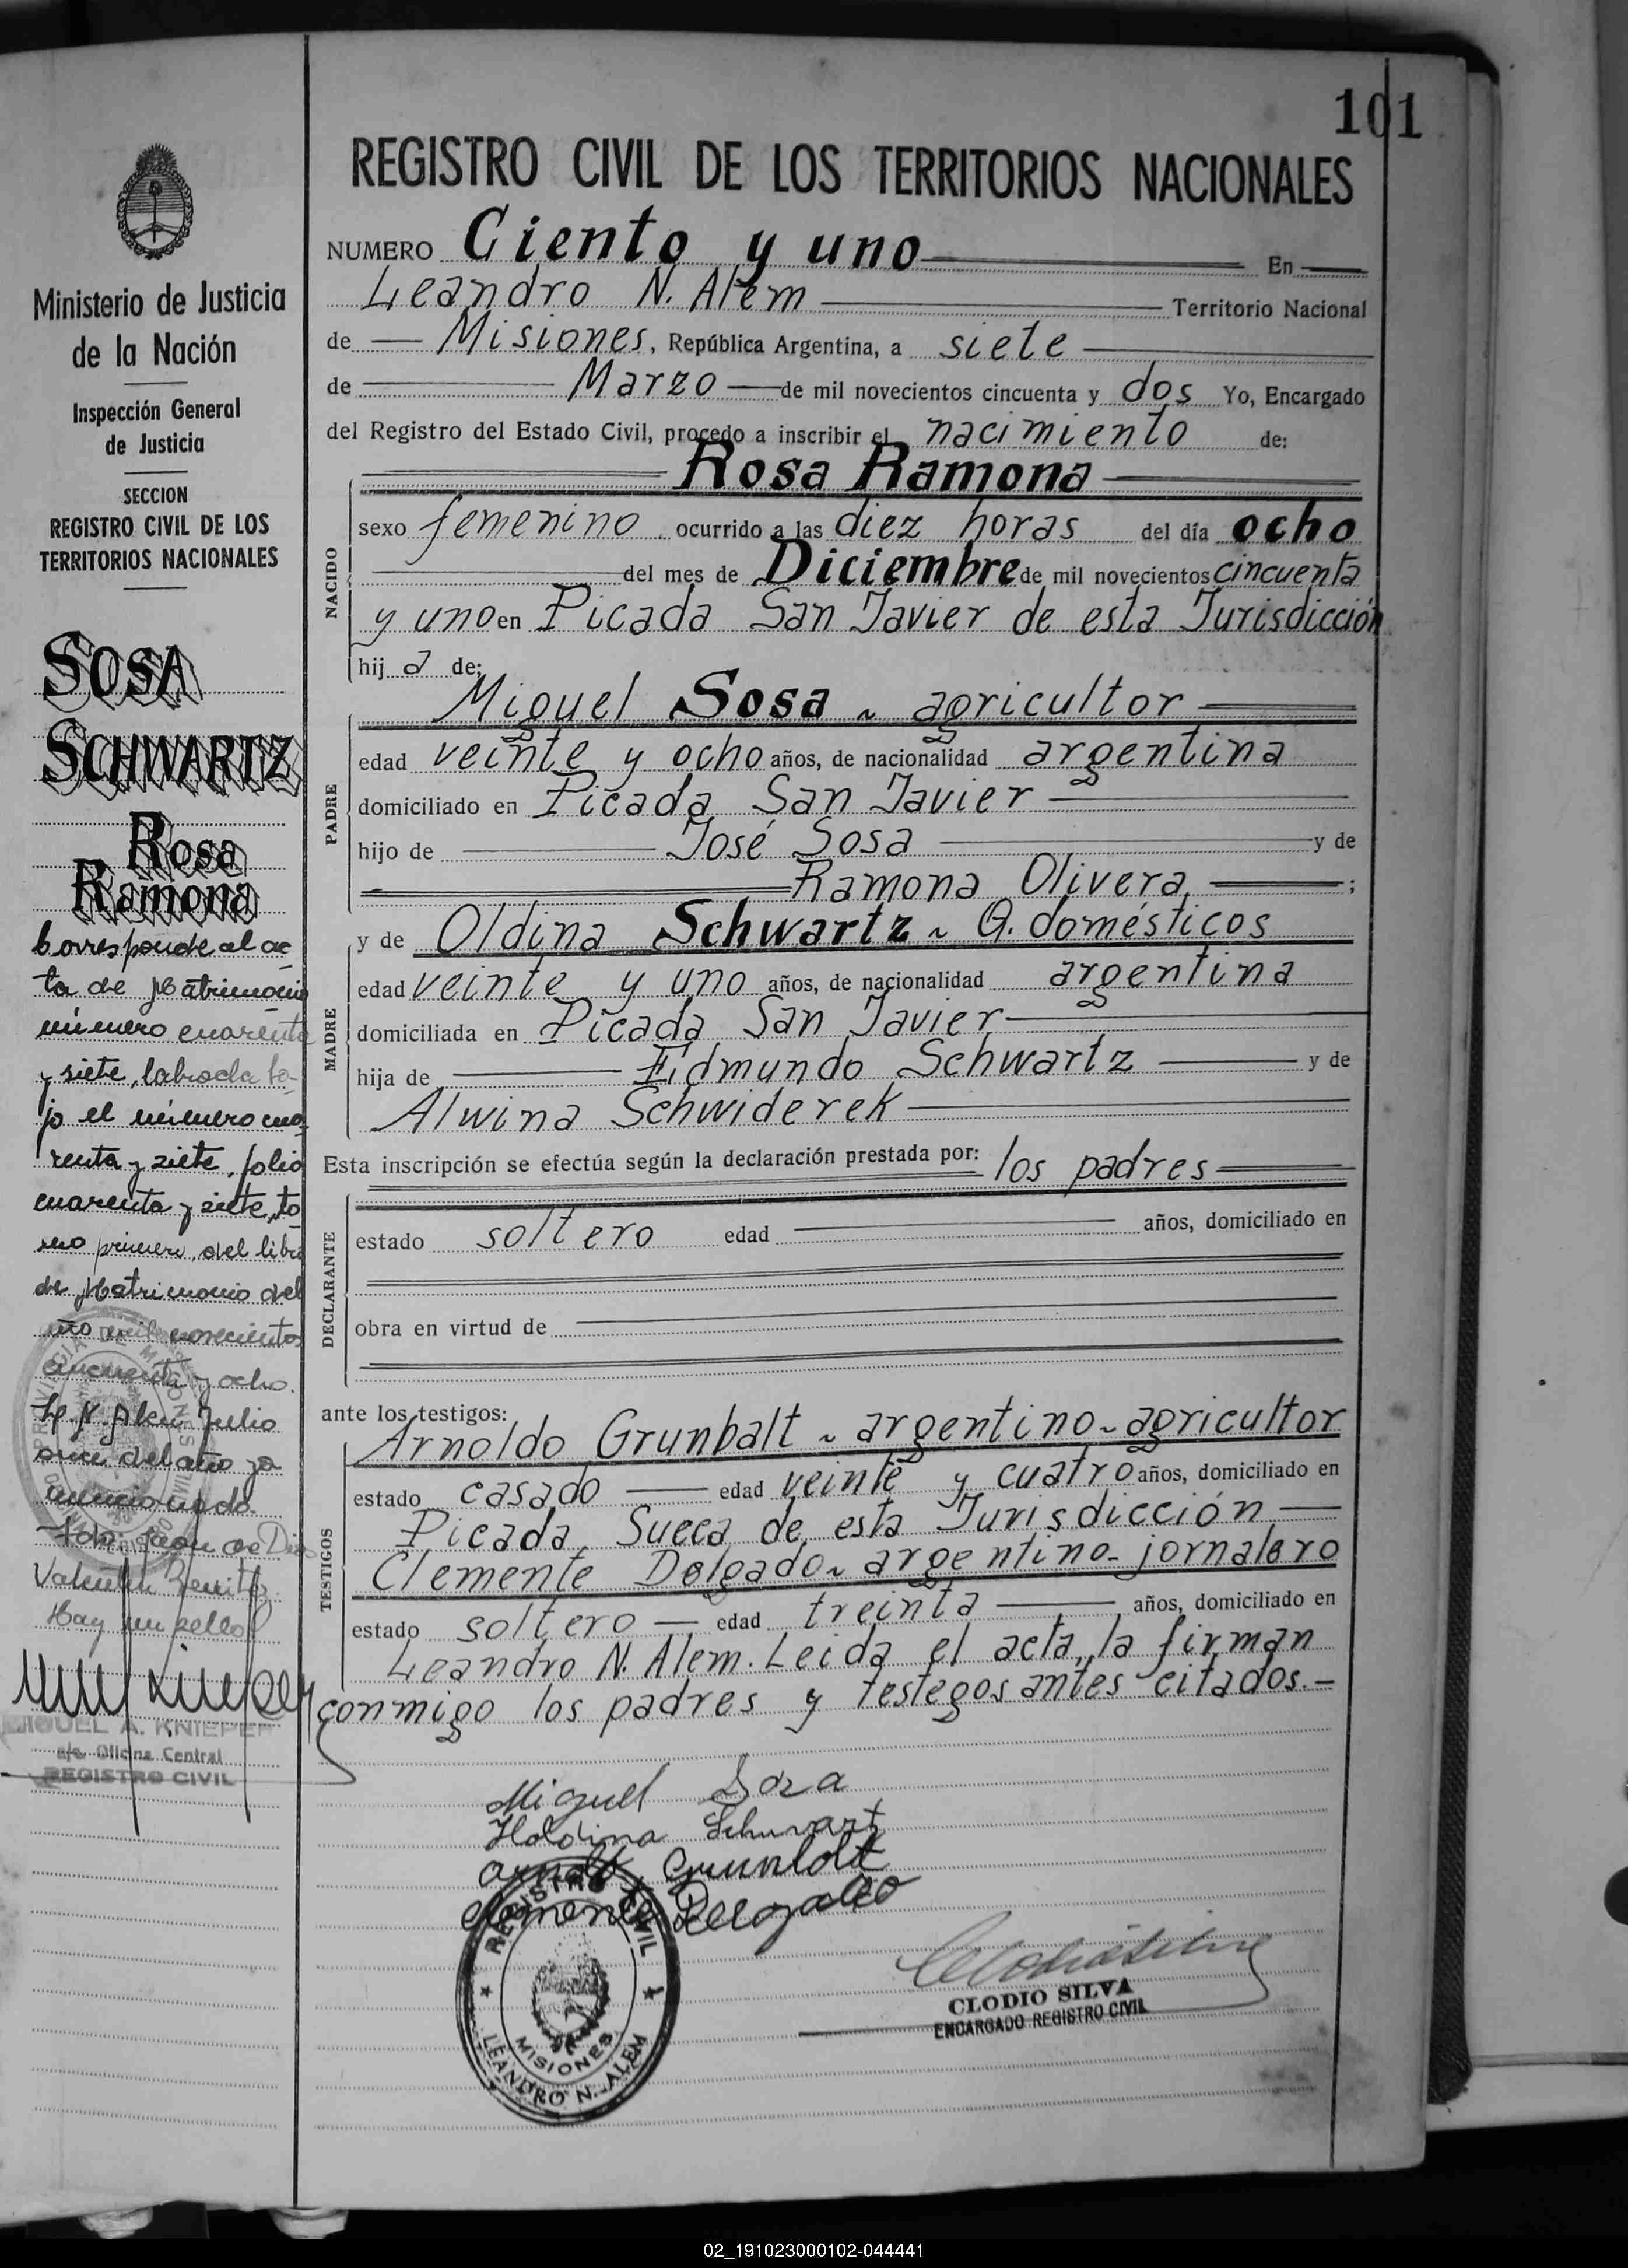 101
REGISTRO CIVIL DE LOS TERRITORIOS NACIONALES
NUMERO Ciento y uno En
Leandro N. Alem Territorio Nacional
de Misiones, República Argentina, a siete
de Marzo de mil novecientos cincuenta y dos Yo, Encargado
del Registro del Estado Civil, procedo a inscribir el nacimiento de:
Rosa Ramona
NACIDO
sexo femenino ocurrido a las diez horas del día ocho
del mes de Diciembre de mil novecientos cincuenta
y uno en Picada San Javier de esta Jurisdicción
hij a de:
Miguel Sosa ~ agricultor
PADRE
edad veinte y ocho años, de nacionalidad argentina
domiciliado en Picada San Javier
hijo de José Sosa y de
Ramona Olivera ;
y de Oldina Schwartz ~ Q. domésticos
MADRE
edad veinte y uno años, de nacionalidad argentina
domiciliada en Picada San Javier
hija de Edmundo Schwartz y de
Alwina Schwiderek
Esta inscripción se efectúa según la declaración prestada por: los padres
DECLARANTE
estado soltero edad años, domiciliado en
obra en virtud de
ante los testigos:
Arnoldo Grunbalt ~ argentino ~ agricultor
TESTIGOS
estado casado edad veinte y cuatro años, domiciliado en
Picada Sueca de esta Jurisdicción
Clemente Delgado ~ argentino - jornalero
estado soltero edad treinta años, domiciliado en
Leandro N. Alem. Leida el acta, la firman
conmigo los padres y testegos antes citados.-
Miguel Soza
Holdina Schwart
Arnoldo Grunbold
Clemente Delgado
REGISTRO CIVIL
MISIONES
LEANDRO N. ALEM
CLODIO SILVA
ENCARGADO REGISTRO CIVIL
Ministerio de Justicia
de la Nación
Inspección General
de Justicia
SECCION
REGISTRO CIVIL DE LOS
TERRITORIOS NACIONALES
SOSA
SCHWARTZ
Rosa
Ramona
Corresponde al ac
ta de Matrimonio
número cuarenta
y siete, labrada ba-
jo el número cua
renta y siete, folio
cuarenta y siete, to
mo primero, del libro
de Matrimonio del
año mil novecientos
cincuenta y ocho.
L. N. Alem Julio
once del año ya
mencionado.
Juan de Dios
Valentin Benitez
Hay un sello
MIGUEL A. KNIEPER
a/c. Oficina Central
REGISTRO CIVIL
02_191023000102-044441